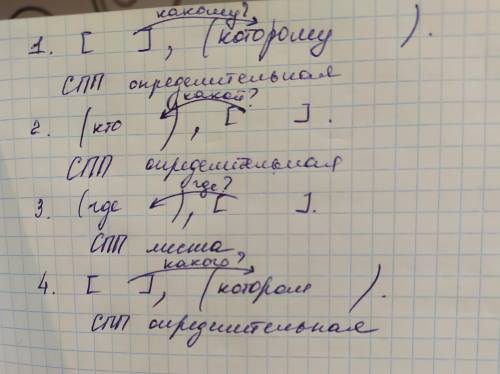 какому?
1. [ ], (которому ).
СПП определительная
какой?
2. (кто ), [ ].
СПП определительная
где?
3. (где ), [ ].
СПП места
какого?
4. [ ], (котором ).
СПП определительная